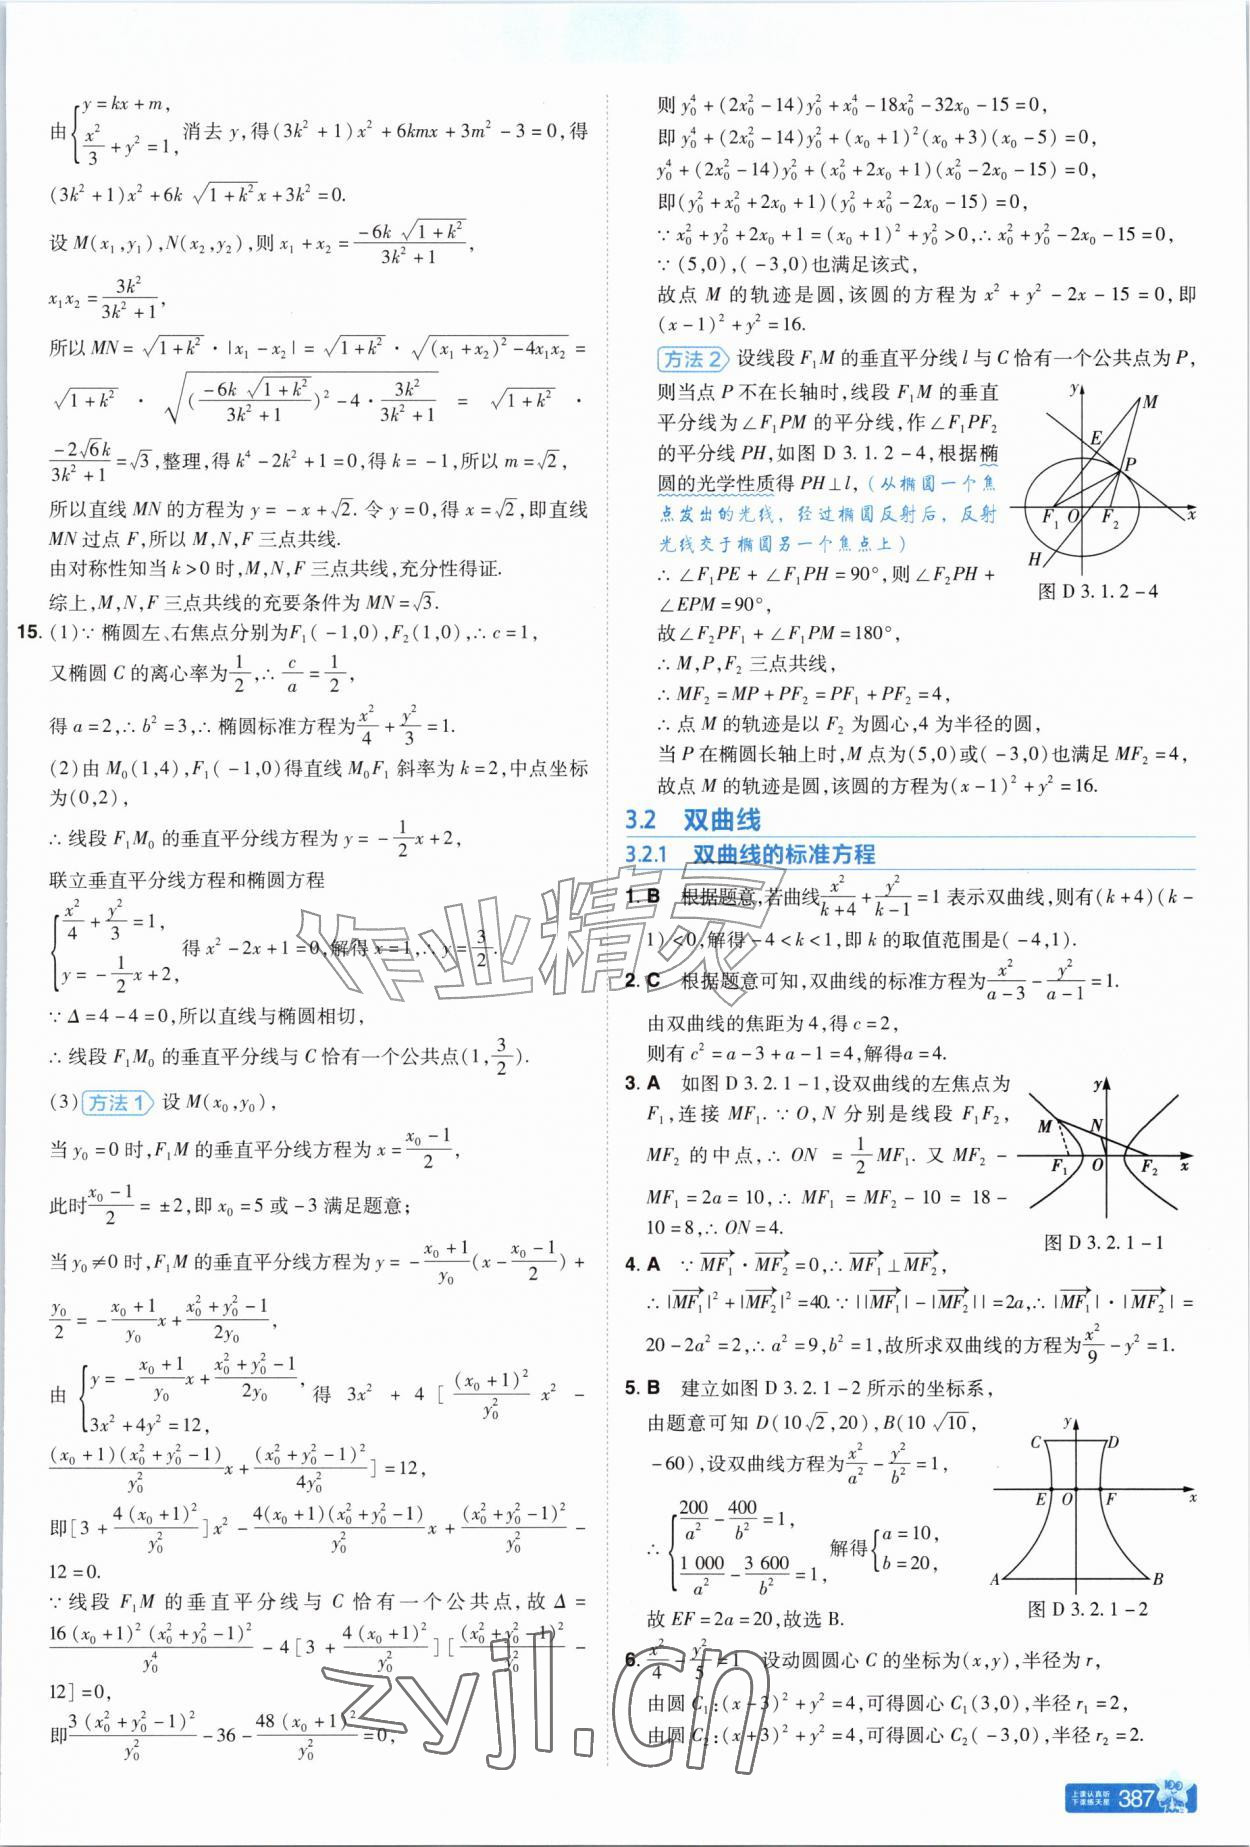 由{y=kx+m, x²/3+y²=1, 消去 y,得(3k²+1)x²+6kmx+3m²-3=0,得
(3k²+1)x²+6k√(1+k²)x+3k²=0.
设 M(x₁,y₁),N(x₂,y₂),则 x₁+x₂=(-6k√(1+k²))/(3k²+1),
x₁x₂=3k²/(3k²+1),
所以 MN=√(1+k²)·|x₁-x₂|=√(1+k²)·√((x₁+x₂)²-4x₁x₂)=
√(1+k²)·√(((-6k√(1+k²))/(3k²+1))²-4·3k²/(3k²+1))=√(1+k²)·
(-2√6k)/(3k²+1)=√3,整理,得 k⁴-2k²+1=0,得 k=-1,所以 m=√2,
所以直线 MN 的方程为 y=-x+√2. 令 y=0,得 x=√2,即直线
MN 过点 F,所以 M,N,F 三点共线.
由对称性知当 k>0 时,M,N,F 三点共线,充分性得证.
综上,M,N,F 三点共线的充要条件为 MN=√3.
15. (1)∵ 椭圆左、右焦点分别为F₁(-1,0),F₂(1,0),∴ c=1,
又椭圆 C 的离心率为1/2,∴ c/a=1/2,
得 a=2,∴ b²=3,∴ 椭圆标准方程为x²/4+y²/3=1.
(2)由 M₀(1,4),F₁(-1,0)得直线 M₀F₁ 斜率为 k=2,中点坐标
为(0,2),
∴ 线段 F₁M₀ 的垂直平分线方程为 y=-1/2x+2,
联立垂直平分线方程和椭圆方程
{x²/4+y²/3=1, y=-1/2x+2, 得 x²-2x+1=0,解得 x=1,∴ y=3/2.
∵ Δ=4-4=0,所以直线与椭圆相切,
∴ 线段 F₁M₀ 的垂直平分线与 C 恰有一个公共点(1,3/2).
(3)方法1 设 M(x₀,y₀),
当 y₀=0 时,F₁M 的垂直平分线方程为 x=(x₀-1)/2,
此时(x₀-1)/2=±2,即 x₀=5 或-3 满足题意;
当 y₀≠0 时,F₁M 的垂直平分线方程为 y=-(x₀+1)/y₀(x-(x₀-1)/2)+
y₀/2=-(x₀+1)/y₀x+(x₀²+y₀²-1)/2y₀,
由{y=-(x₀+1)/y₀x+(x₀²+y₀²-1)/2y₀, 3x²+4y²=12, 得 3x²+4[(x₀+1)²/y₀²x²-
(x₀+1)(x₀²+y₀²-1)/y₀²x+(x₀²+y₀²-1)²/4y₀²]=12,
即[3+4(x₀+1)²/y₀²]x²-4(x₀+1)(x₀²+y₀²-1)/y₀²x+(x₀²+y₀²-1)²/y₀²-
12=0.
∵ 线段 F₁M 的垂直平分线与 C 恰有一个公共点,故 Δ=
16(x₀+1)²(x₀²+y₀²-1)²/y₀⁴-4[3+4(x₀+1)²/y₀²][(x₀²+y₀²-1)²/y₀²-
12]=0,
即3(x₀²+y₀²-1)²/y₀²-36-48(x₀+1)²/y₀²=0,
则 y₀⁴+(2x₀²-14)y₀²+x₀⁴-18x₀²-32x₀-15=0,
即 y₀⁴+(2x₀²-14)y₀²+(x₀+1)²(x₀+3)(x₀-5)=0,
y₀⁴+(2x₀²-14)y₀²+(x₀²+2x₀+1)(x₀²-2x₀-15)=0,
即(y₀²+x₀²+2x₀+1)(y₀²+x₀²-2x₀-15)=0,
∵ x₀²+y₀²+2x₀+1=(x₀+1)²+y₀²>0,∴ x₀²+y₀²-2x₀-15=0,
∵ (5,0),(-3,0)也满足该式,
故点 M 的轨迹是圆,该圆的方程为 x²+y²-2x-15=0,即
(x-1)²+y²=16.
方法2 设线段 F₁M 的垂直平分线 l 与 C 恰有一个公共点为 P,
则当点 P 不在长轴时,线段 F₁M 的垂直
平分线为∠F₁PM 的平分线,作∠F₁PF₂
的平分线 PH,如图 D 3.1.2-4,根据椭
圆的光学性质得 PH⊥l,(从椭圆一个焦
点发出的光线,经过椭圆反射后,反射
光线交于椭圆另一个焦点上)
∴ ∠F₁PE+∠F₁PH=90°,则∠F₂PH+
∠EPM=90°,
故∠F₂PF₁+∠F₁PM=180°,
∴ M,P,F₂ 三点共线,
∴ MF₂=MP+PF₂=PF₁+PF₂=4,
∴ 点 M 的轨迹是以 F₂ 为圆心,4 为半径的圆,
当 P 在椭圆长轴上时,M 点为(5,0)或(-3,0)也满足 MF₂=4,
故点 M 的轨迹是圆,该圆的方程为(x-1)²+y²=16.
y M E P F₁ O F₂ x H
图 D 3.1.2-4
3.2 双曲线
3.2.1 双曲线的标准方程
1. B 根据题意,若曲线x²/(k+4)+y²/(k-1)=1 表示双曲线,则有(k+4)(k-
1)<0,解得-4<k<1,即 k 的取值范围是(-4,1).
2. C 根据题意可知,双曲线的标准方程为x²/(a-3)-y²/(a-1)=1.
由双曲线的焦距为 4,得 c=2,
则有 c²=a-3+a-1=4,解得a=4.
3. A 如图 D 3.2.1-1,设双曲线的左焦点为
F₁,连接 MF₁. ∵ O,N 分别是线段 F₁F₂,
MF₂ 的中点,∴ ON=1/2MF₁. 又 MF₂-
MF₁=2a=10,∴ MF₁=MF₂-10=18-
10=8,∴ ON=4.
y M N F₁ O F₂ x
图 D 3.2.1-1
4. A ∵ MF₁→·MF₂→=0,∴ MF₁→⊥MF₂→,
∴ |MF₁→|²+|MF₂→|²=40. ∵ ||MF₁→|-|MF₂→||=2a,∴ |MF₁→|·|MF₂→|=
20-2a²=2,∴ a²=9,b²=1,故所求双曲线的方程为x²/9-y²=1.
5. B 建立如图 D 3.2.1-2 所示的坐标系,
由题意可知 D(10√2,20),B(10√10,
-60),设双曲线方程为x²/a²-y²/b²=1,
∴ {200/a²-400/b²=1, 1 000/a²-3 600/b²=1, 解得{a=10, b=20,
故 EF=2a=20,故选 B.
y C D E O F x A B
图 D 3.2.1-2
6. x²/4-y²/5=1 设动圆圆心 C 的坐标为(x,y),半径为 r,
由圆 C₁:(x-3)²+y²=4,可得圆心 C₁(3,0),半径 r₁=2,
由圆 C₂:(x+3)²+y²=4,可得圆心 C₂(-3,0),半径 r₂=2.
作业精灵
zyjl.cn
上课认真听
下课练天星
387
100